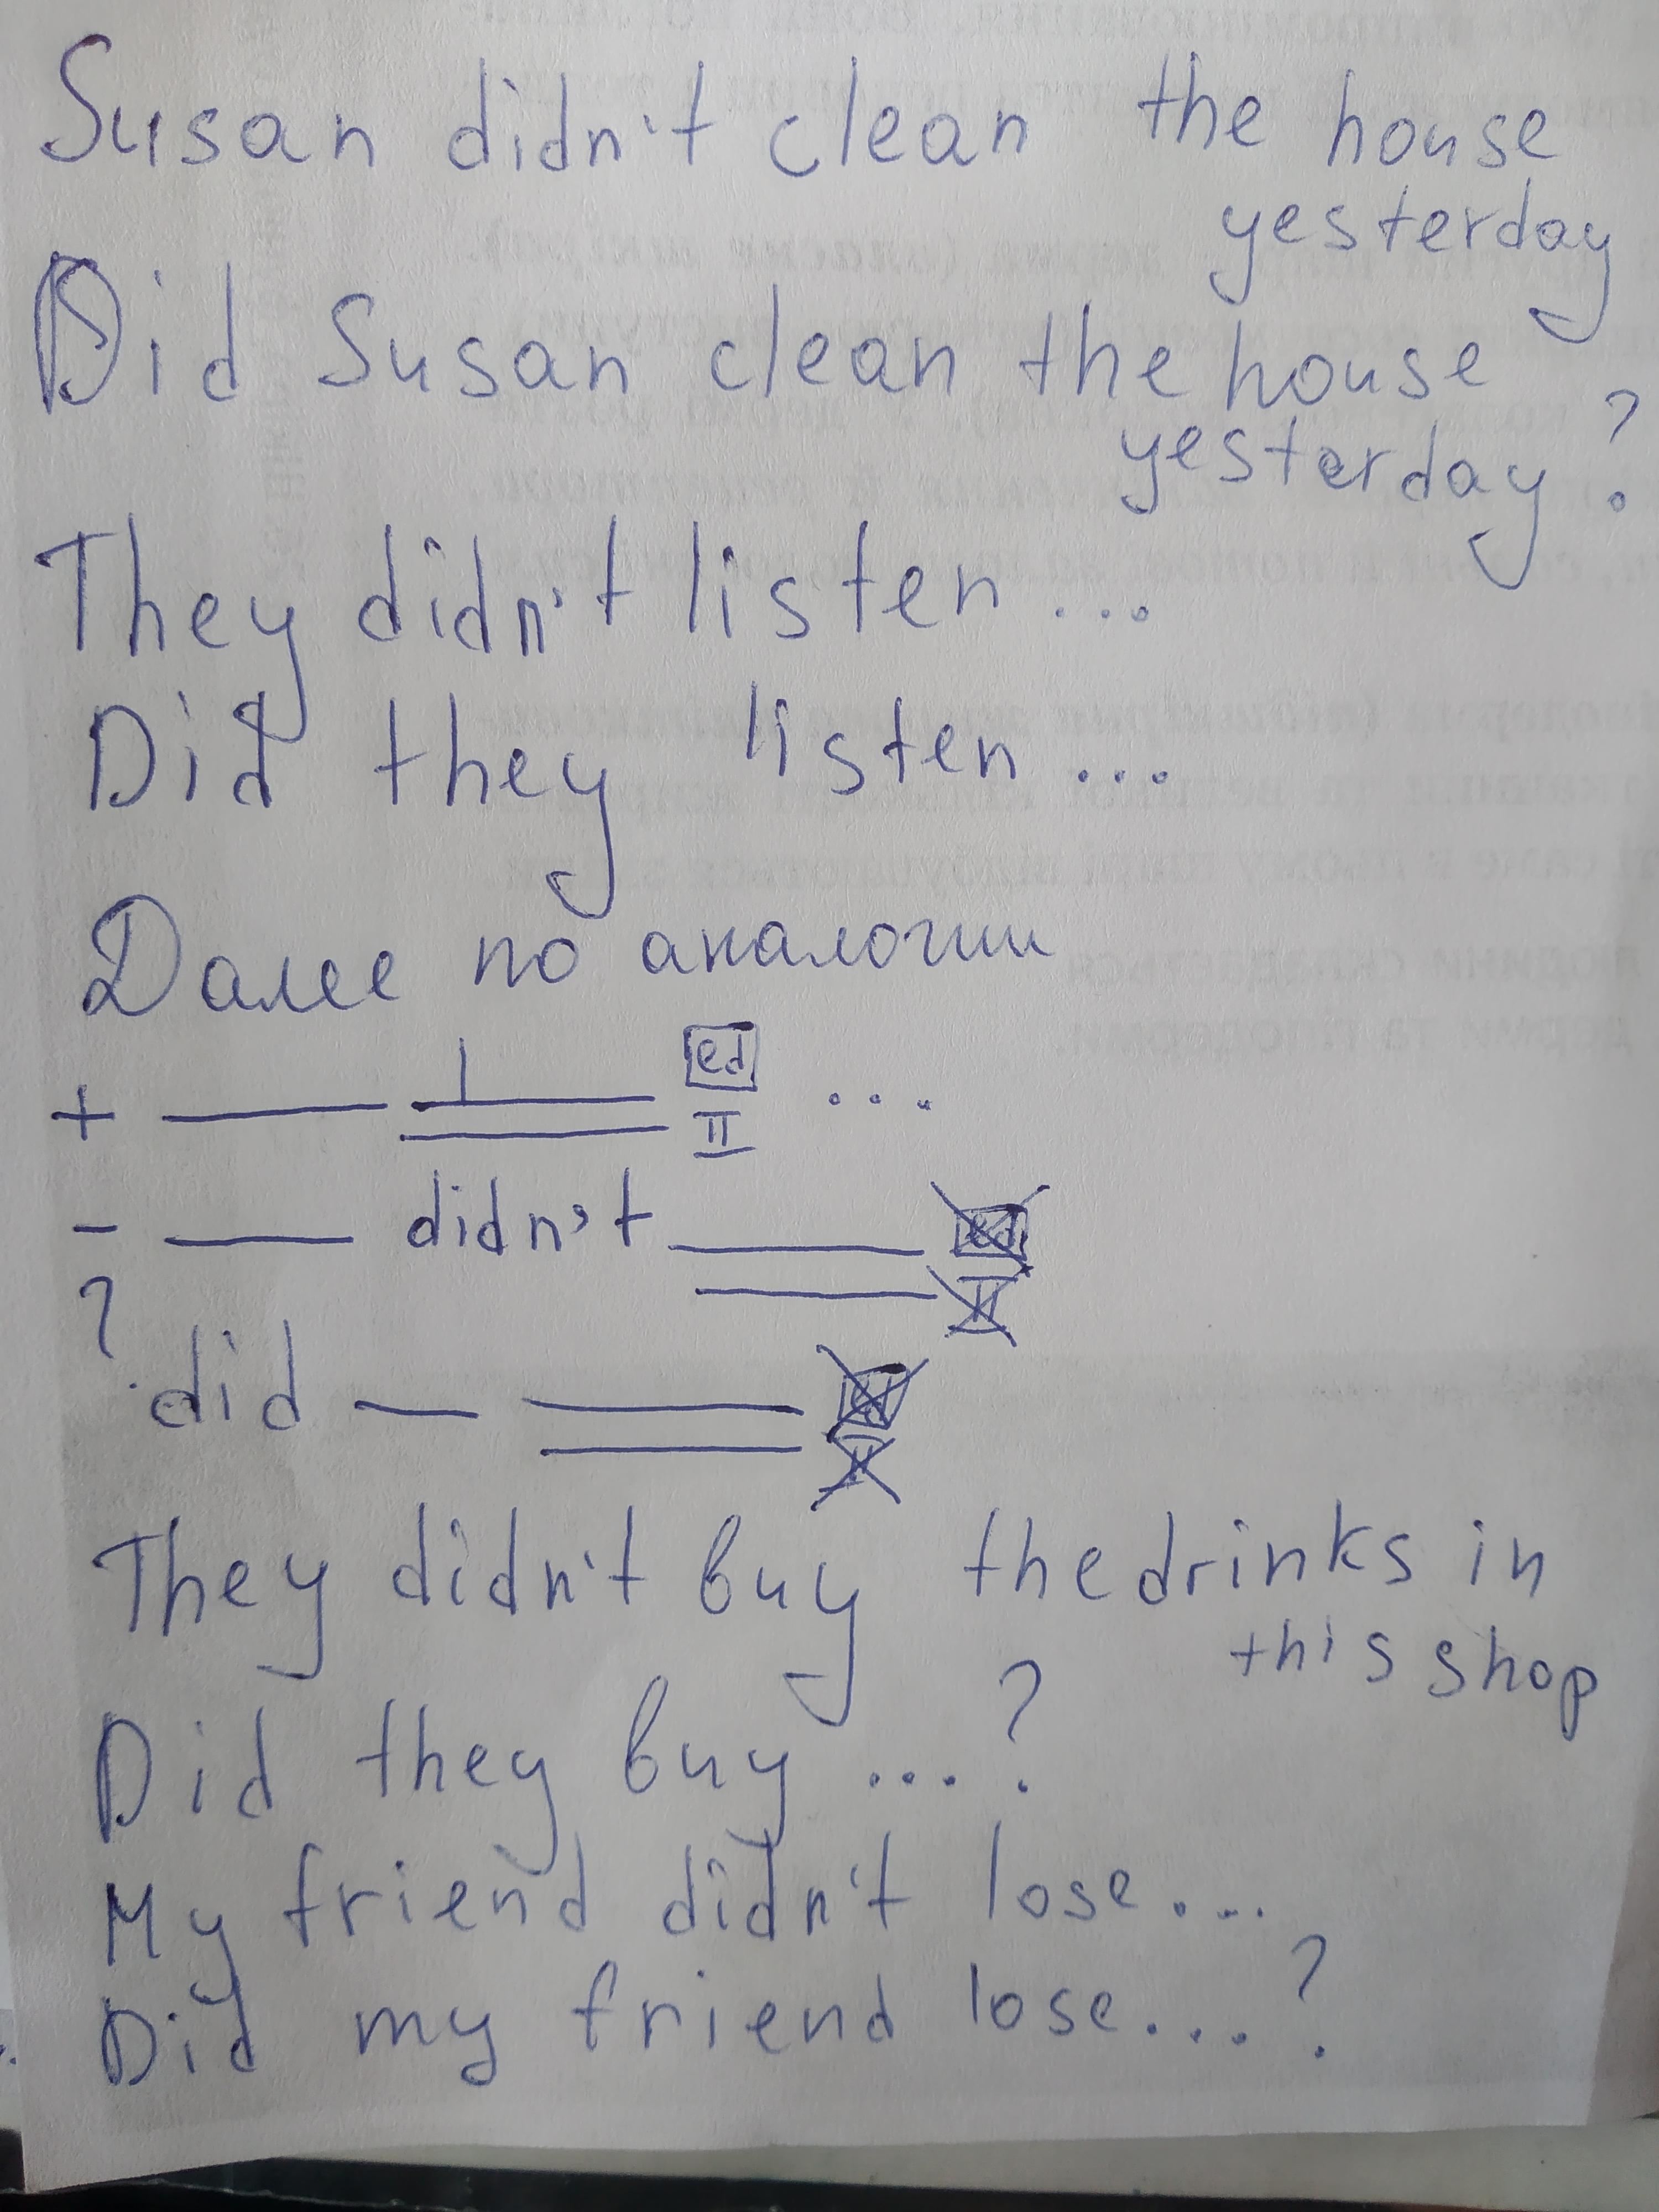 Susan didn't clean the house
yesterday
Did Susan clean the house
yesterday?
They didn't listen...
Did they listen...
Далее по аналогии
+ ed ...
II
- didn't ed
II
?
did ed
II
They didn't buy the drinks in
this shop
Did they buy ...?
My friend didn't lose...
Did my friend lose...?